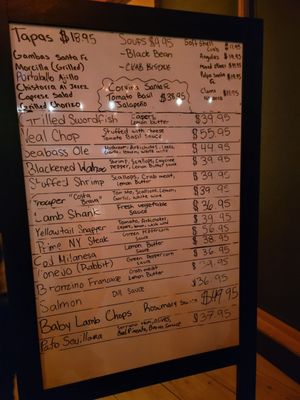 Tapas $18.95
Gambas Santa Fe
Morcilla (Grilled)
Portabello Ajillo
Chistorra Al Jerez
Caprese Salad
Grilled Chorizo
Soups $9.95
-Black Bean
-Crab Bisque
Corvina Santa Fe
Tomato Basil $38.95
Jalapeño
Soft Shell
Crab
Angulas
Clams
Grilled Swordfish Capers, Lemon butter $39.95
Veal Chop Stuffed with cheese Tomato Basil Sauce $55.95
Seabass Ole Mushroom, Artichokes, Lemon, white wine $44.95
Blackened Wahoo Shrimp, Scallops, Cayenne pepper, Lemon Butter $39.95
Stuffed Shrimp Scallops, Crab meat, Lemon Butter $39.95
Trouper "Costa Brava" Tomato, Scallion, Lemon, Garlic, white wine $39.95
Lamb Shank Fresh vegetable Sauce $36.95
Yellowtail Snapper Tomato, Artichokes, $39.95
Prime NY Steak Green Peppercorn $56.95
Cod Milanesa Lemon Butter $38.95
Conejo (Rabbit) Green Peppercorn $36.95
Bronzino Francaise Crab meat Lemon Butter
Salmon Dill Sauce $36.95
Baby Lamb Chops Rosemary Sauce $49.95
Pato Sevillana Brown Sauce $37.95